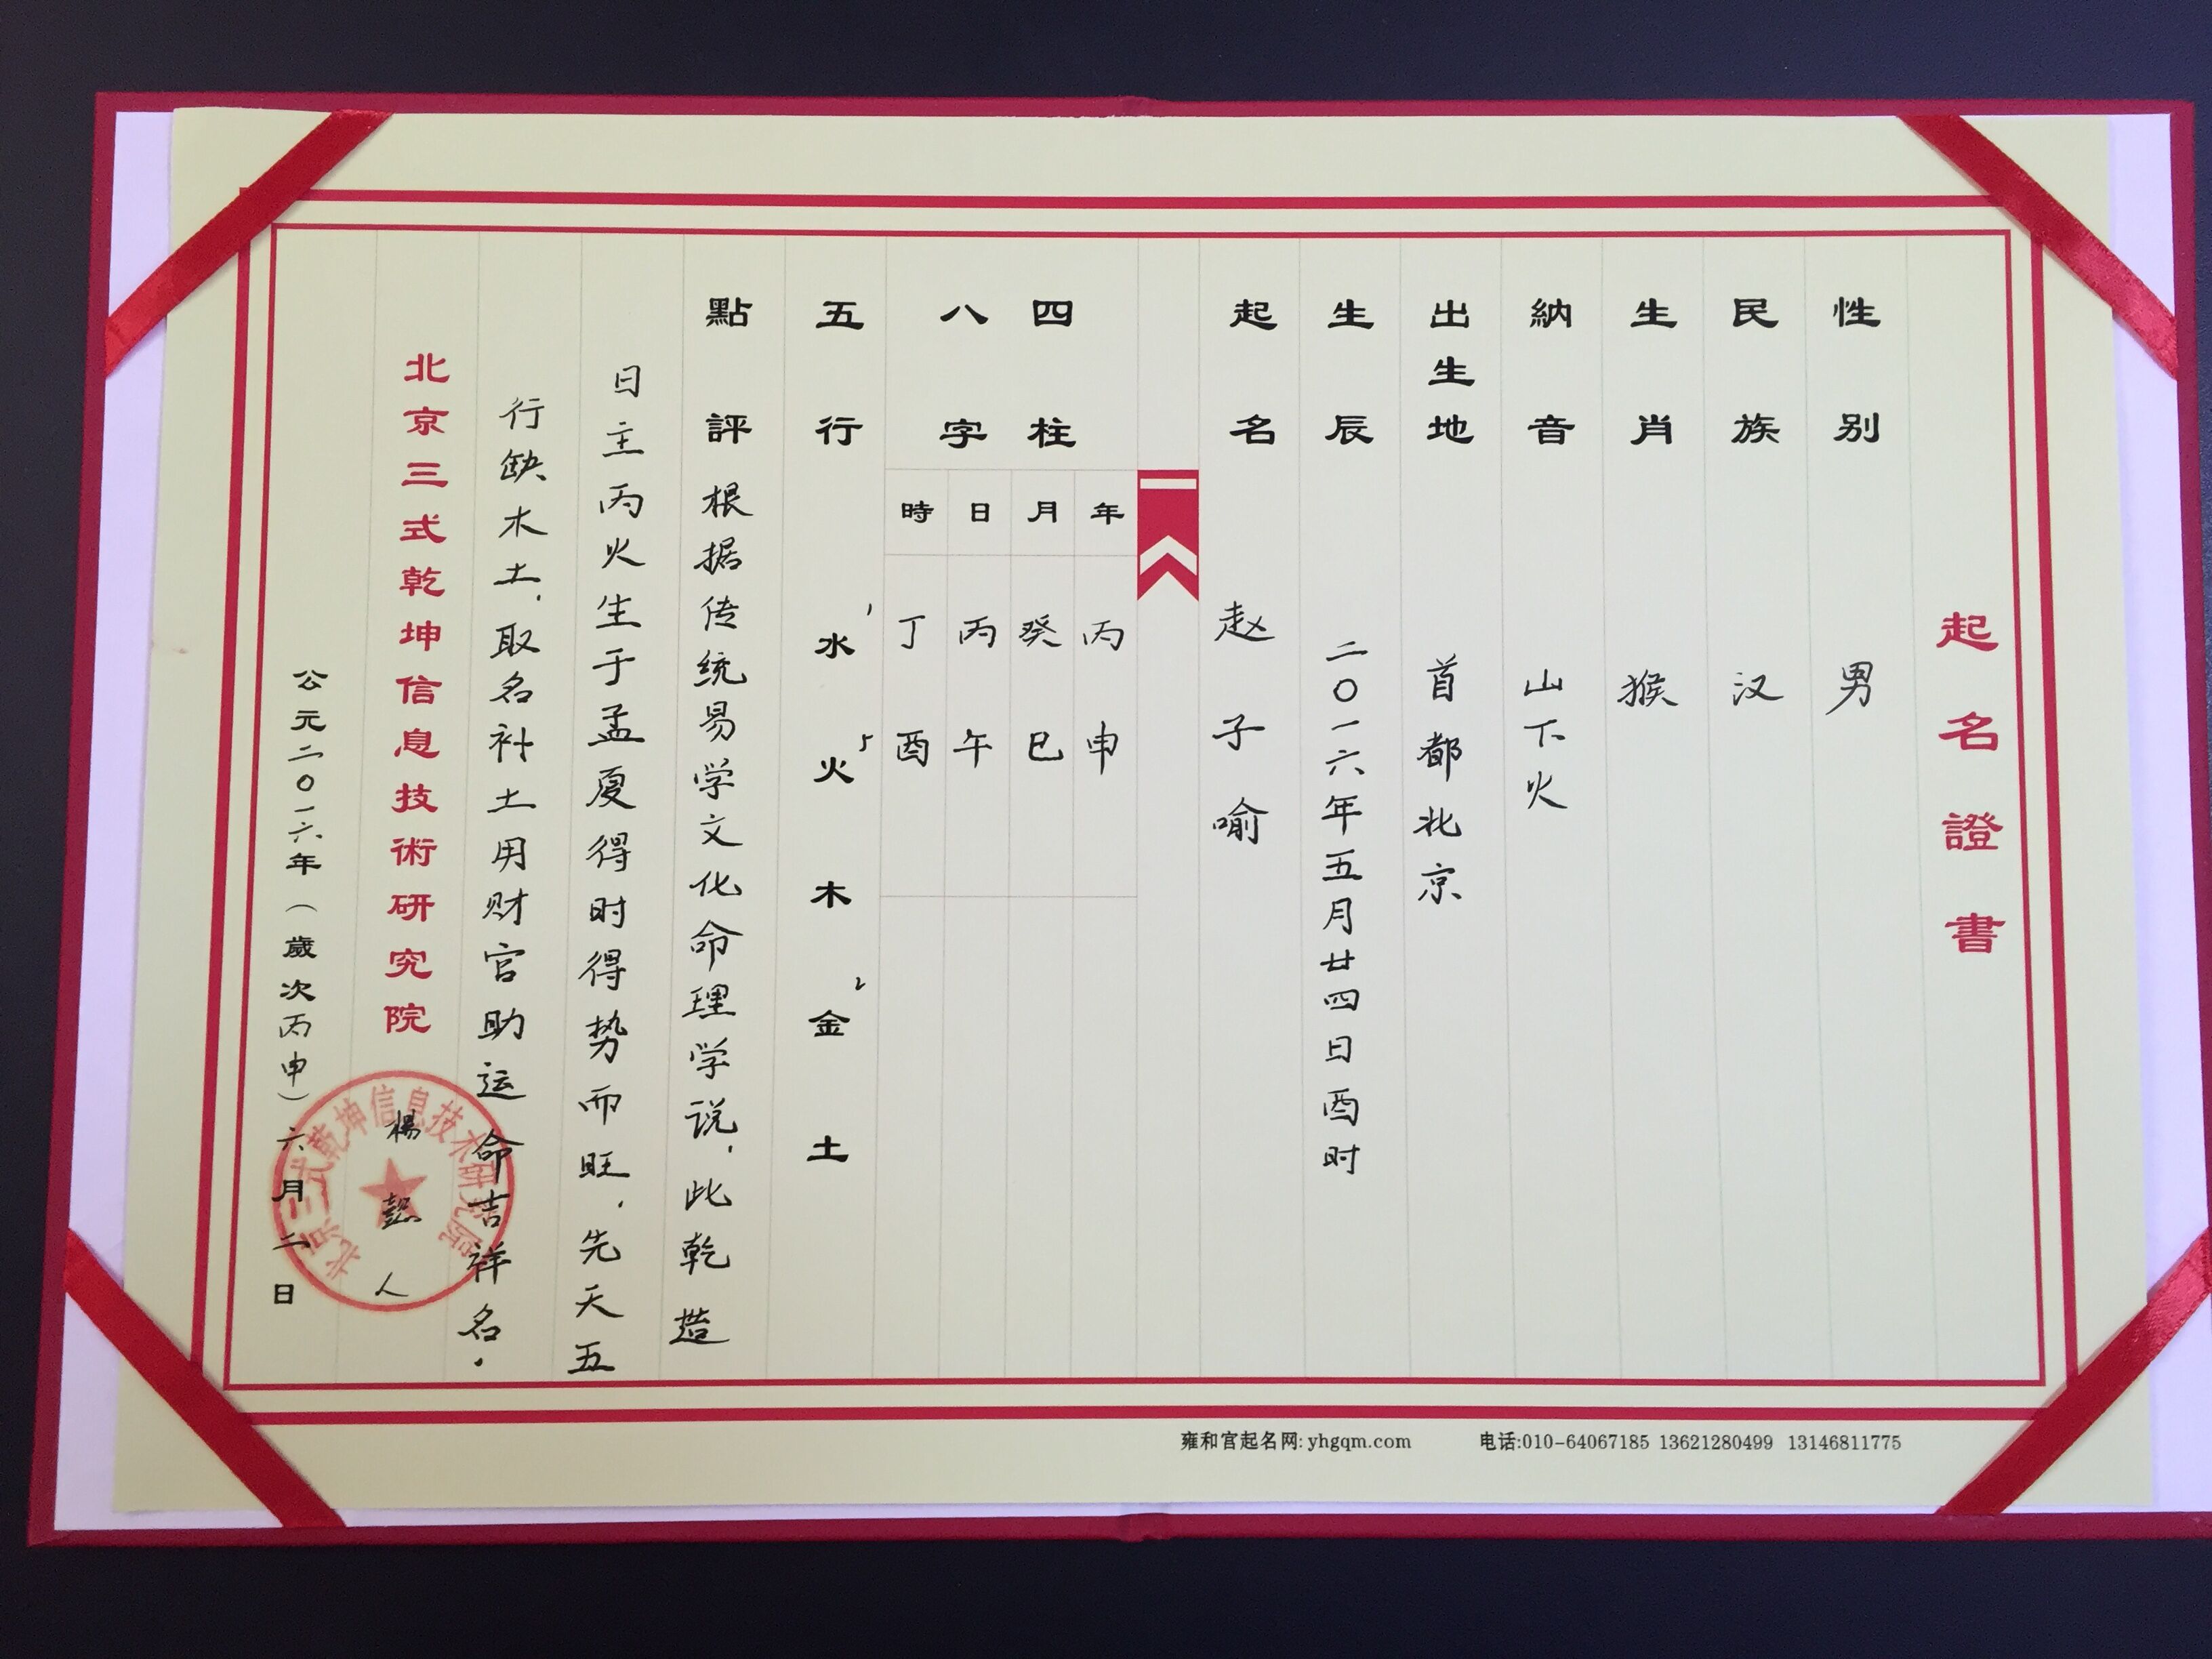 起名證書
性别 男
民族 汉
生肖 猴
納音 山下火
出生地 首都北京
生辰 二〇一六年五月廿四日酉时
起名 赵子喻
四柱
八字
年 丙申
月 癸巳
日 丙午
時 丁酉
五行 水1 火5 木 金2 土
點評 根据传统易学文化命理学说,此乾造
日主丙火生于孟夏得时得势而旺,先天五
行缺木土,取名补土用财官助运 命吉祥名.
北京三式乾坤信息技術研究院
楊懿人
公元二〇一六年(歲次丙申)六月二日
北京三式乾坤信息技术研究院
雍和宫起名网: yhgqm.com 电话:010-64067185 13621280499 13146811775